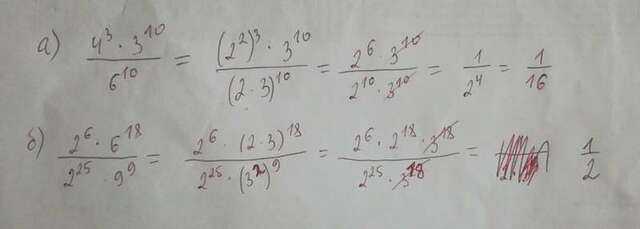 а) (4³ · 3¹⁰)/6¹⁰ = ((2²)³ · 3¹⁰)/(2 · 3)¹⁰ = (2⁶ · 3¹⁰)/(2¹⁰ · 3¹⁰) = 1/2⁴ = 1/16
б) (2⁶ · 6¹⁸)/(2²⁵ · 9⁹) = (2⁶ · (2 · 3)¹⁸)/(2²⁵ · (3²)⁹) = (2⁶ · 2¹⁸ · 3¹⁸)/(2²⁵ · 3¹⁸) = 1/2